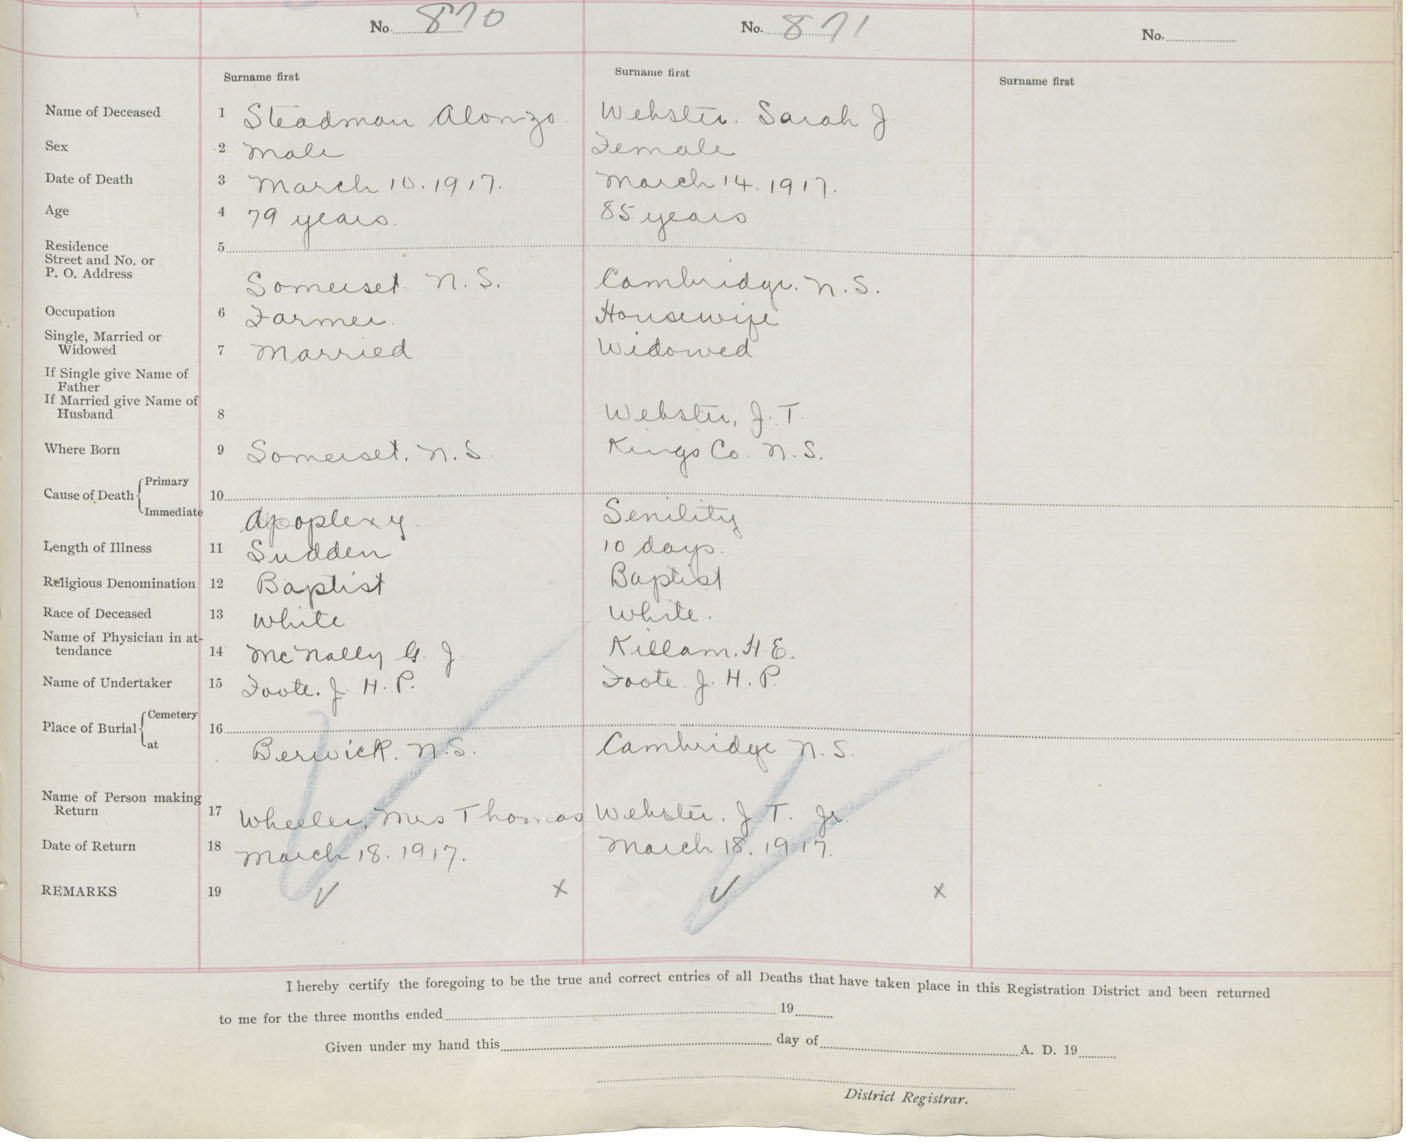 No. 870 No. 871 No.
Surname first Surname first Surname first
Name of Deceased 1 Steadman Alonzo. Webster. Sarah J
Sex 2 Male Female
Date of Death 3 March 10. 1917. March 14. 1917.
Age 4 79 years. 85 years
Residence 5
Street and No. or
P. O. Address
Somerset. N. S. Cambridge. N. S.
Occupation 6 Farmer. Housewife
Single, Married or
Widowed 7 Married Widowed
If Single give Name of
Father
If Married give Name of
Husband 8 Webster, J. T.
Where Born 9 Somerset. N. S. Kings Co. N. S.
Cause of Death Primary 10
Immediate Apoplexy. Senility
Length of Illness 11 Sudden 10 days.
Religious Denomination 12 Baptist Baptist
Race of Deceased 13 White White.
Name of Physician in at-
tendance 14 McNally G. J. Killam. H. E.
Name of Undertaker 15 Foote. J. H. P. Foote. J. H. P.
Place of Burial Cemetery 16
at Berwick. N. S. Cambridge N. S.
Name of Person making
Return 17 Wheeler, Mrs Thomas Webster. J. T. Jr.
Date of Return 18 March 18. 1917. March 18. 1917.
REMARKS 19 ✓ x ✓ x
I hereby certify the foregoing to be the true and correct entries of all Deaths that have taken place in this Registration District and been returned
to me for the three months ended 19
Given under my hand this day of A. D. 19
District Registrar.